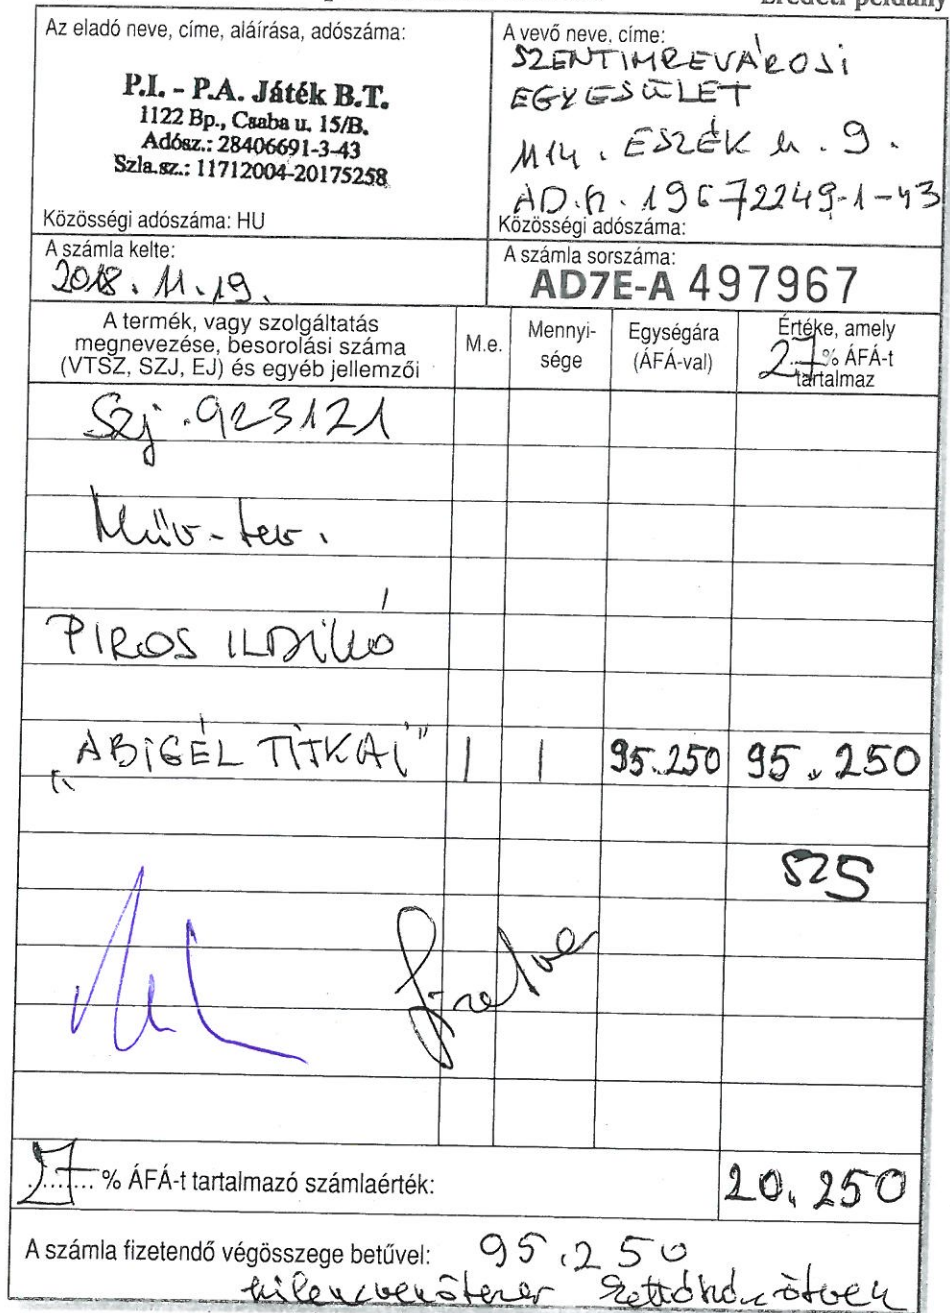 Eredeti példány
Az eladó neve, címe, aláírása, adószáma:
P.I. - P.A. Játék B.T.
1122 Bp., Csaba u. 15/B.
Adósz.: 28406691-3-43
Szla.sz.: 11712004-20175258
Közösségi adószáma: HU
A vevő neve, címe:
SZENTIMREVÁROSI
EGYESÜLET
1114. ESZÉK u. 9.
AD.n. 19672249-1-43
Közösségi adószáma:
A számla kelte:
2018. 11. 19.
A számla sorszáma:
AD7E-A 497967
A termék, vagy szolgáltatás
megnevezése, besorolási száma
(VTSZ, SZJ, EJ) és egyéb jellemzői
M.e.
Mennyi-
sége
Egységára
(ÁFÁ-val)
Értéke, amely
27 % ÁFÁ-t
tartalmaz
Szj. 923121
Műv-tev.
PIROS ILDIKÓ
„ABIGÉL TITKAI" 1 1 95.250 95.250
Fizetve
27 % ÁFÁ-t tartalmazó számlaérték: 20.250
A számla fizetendő végösszege betűvel: 95.250
kilencvenötezer kettőszázötven